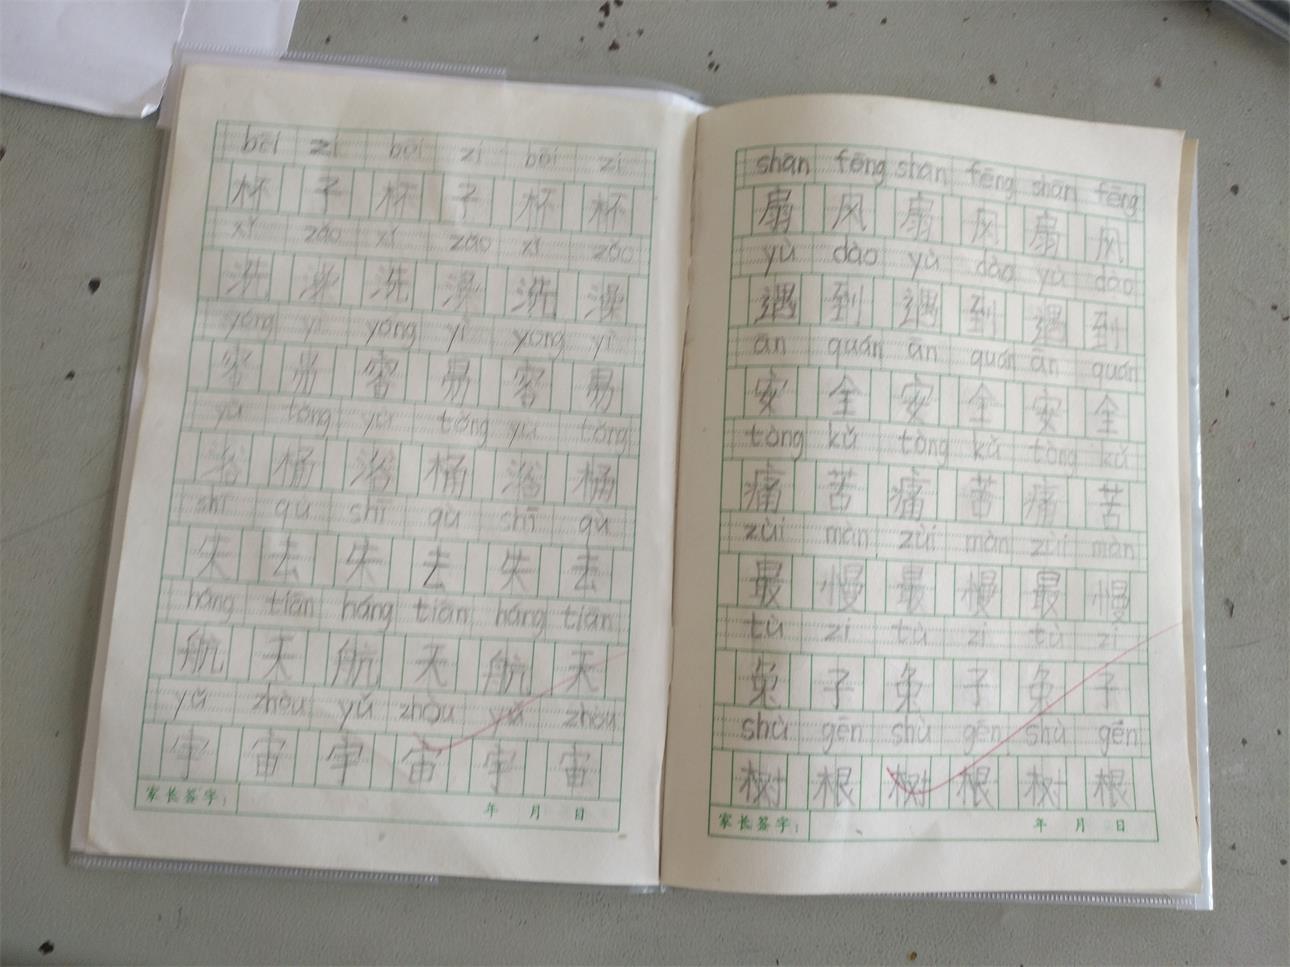 bēi zi bēi zi bēi zi
杯 子 杯 子 杯 杯
xǐ zǎo xǐ zǎo xǐ zǎo
洗 澡 洗 澡 洗 澡
yóng yì yóng yì yóng yì
容 易 容 易 容 易
yù tǒng yù tǒng yù tǒng
浴 桶 浴 桶 浴 桶
shī qù shī qù shī qù
失 去 失 去 失 去
háng tiān háng tiān háng tiān
航 天 航 天 航 天
yǔ zhòu yǔ zhòu yǔ zhòu
宇 宙 宇 宙 宇 宙
家长签字： 年 月 日
shān fēng shān fēng shān fēng
扇 风 扇 风 扇 风
yù dào yù dào yù dào
遇 到 遇 到 遇 到
ān quán ān quán ān quán
安 全 安 全 安 全
tòng kǔ tòng kǔ tòng kǔ
痛 苦 痛 苦 痛 苦
zùi màn zùi màn zùi màn
最 慢 最 慢 最 慢
tù zi tù zi tù zi
兔 子 兔 子 兔 子
shù gēn shù gēn shù gēn
树 根 树 根 树 根
家长签字： 年 月 日